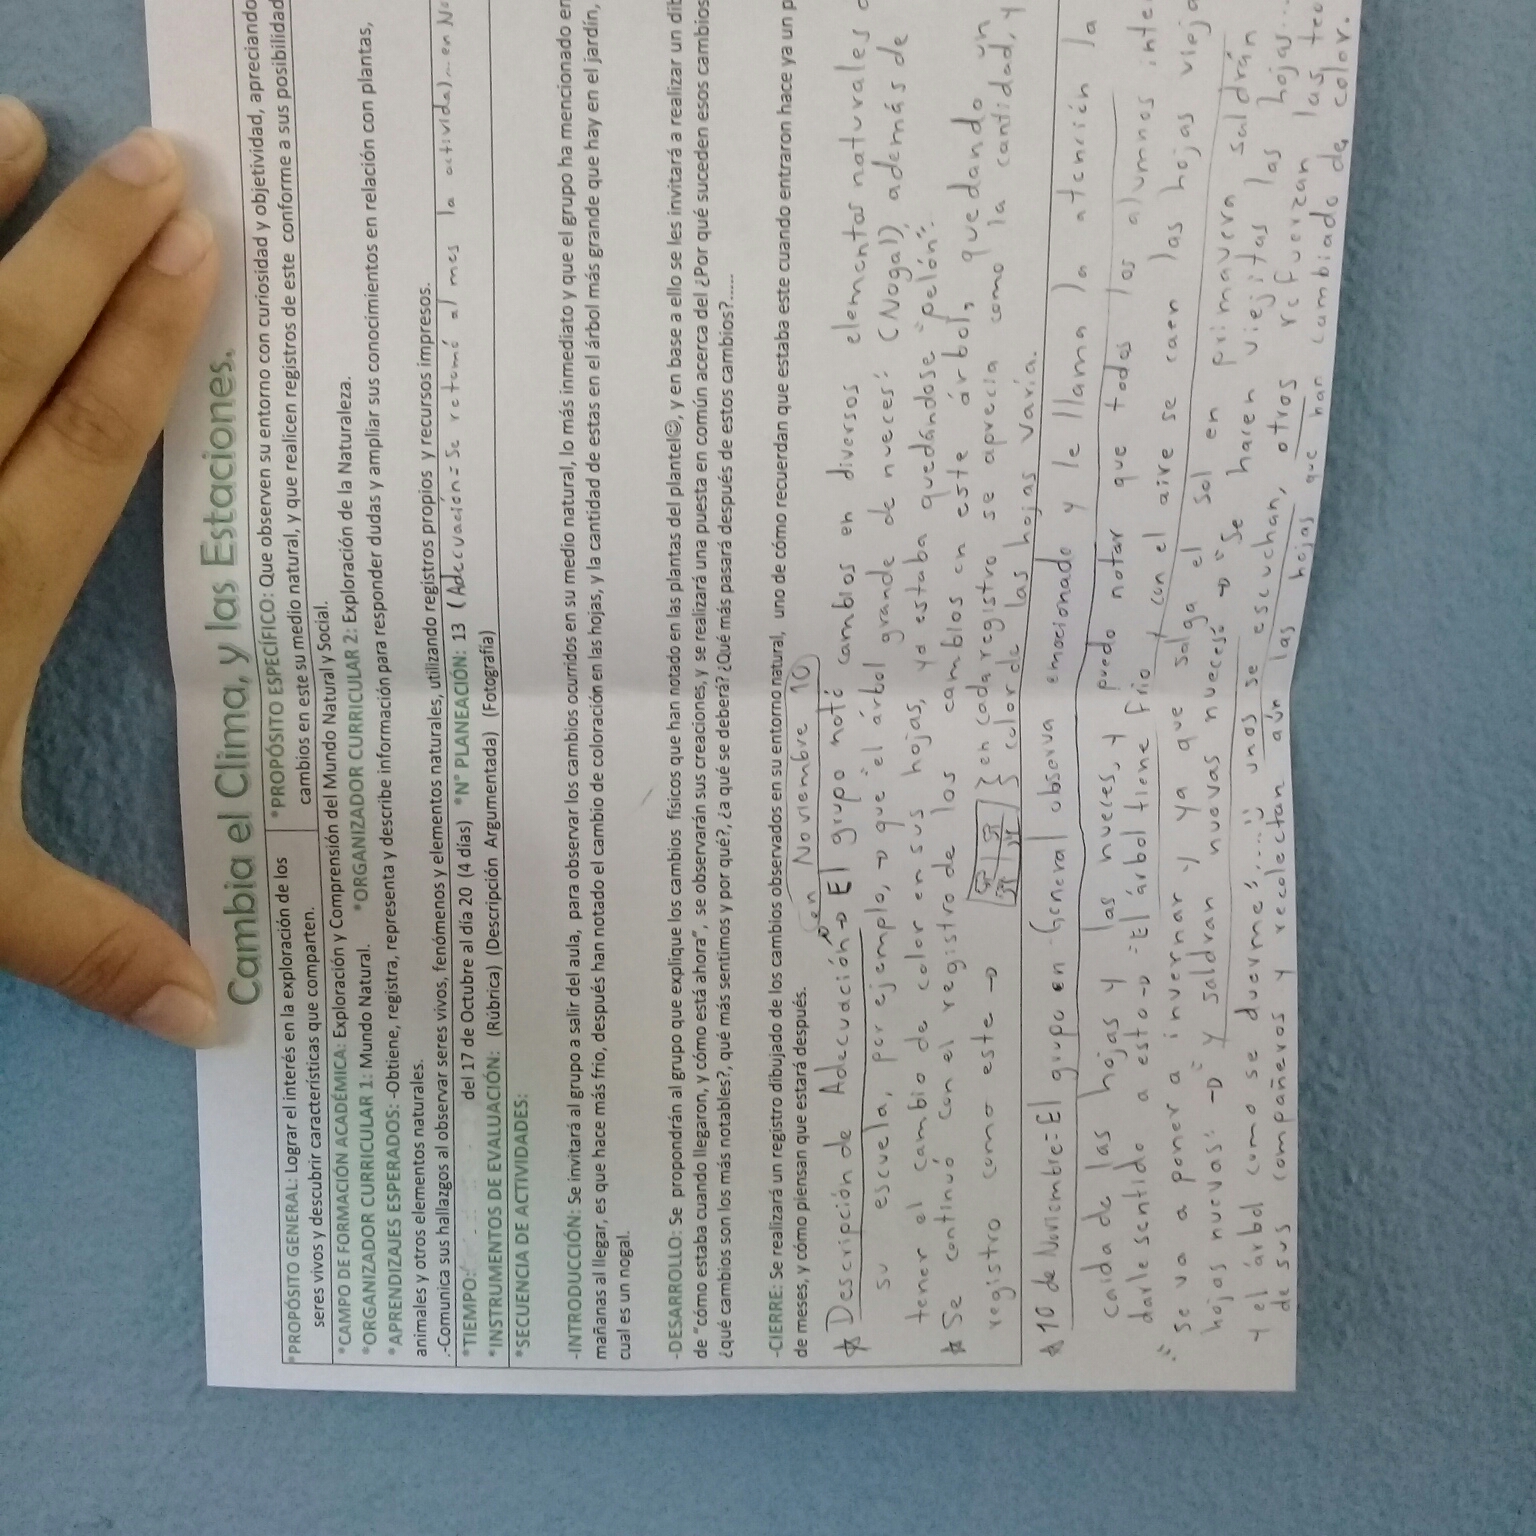 Cambia el Clima, y las Estaciones.
*PROPÓSITO GENERAL: Lograr el interés en la exploración de los
seres vivos y descubrir características que comparten.
*PROPÓSITO ESPECÍFICO: Que observen su entorno con curiosidad y objetividad, apreciando
cambios en este su medio natural, y que realicen registros de este conforme a sus posibilidad
*CAMPO DE FORMACIÓN ACADÉMICA: Exploración y Comprensión del Mundo Natural y Social.
*ORGANIZADOR CURRICULAR 1: Mundo Natural. *ORGANIZADOR CURRICULAR 2: Exploración de la Naturaleza.
*APRENDIZAJES ESPERADOS: -Obtiene, registra, representa y describe información para responder dudas y ampliar sus conocimientos en relación con plantas,
animales y otros elementos naturales.
.-Comunica sus hallazgos al observar seres vivos, fenómenos y elementos naturales, utilizando registros propios y recursos impresos.
*TIEMPO: del 17 de Octubre al día 20 (4 días) *N° PLANEACIÓN: 13 (Adecuación = Se retomó al mes la actividad)... en No
*INSTRUMENTOS DE EVALUACIÓN: (Rúbrica) (Descripción Argumentada) (Fotografía)
*SECUENCIA DE ACTIVIDADES:
-INTRODUCCIÓN: Se invitará al grupo a salir del aula, para observar los cambios ocurridos en su medio natural, lo más inmediato y que el grupo ha mencionado en
mañanas al llegar, es que hace más frío, después han notado el cambio de coloración en las hojas, y la cantidad de estas en el árbol más grande que hay en el jardín,
cual es un nogal.
-DESARROLLO: Se propondrán al grupo que explique los cambios físicos que han notado en las plantas del plantel☺, y en base a ello se les invitará a realizar un dib
de "cómo estaba cuando llegaron, y cómo está ahora", se observarán sus creaciones, y se realizará una puesta en común acerca del ¿Por qué suceden esos cambios
¿qué cambios son los más notables?, qué más sentimos y por qué?, ¿a qué se deberá? ¿Qué más pasará después de estos cambios?.....
-CIERRE: Se realizará un registro dibujado de los cambios observados en su entorno natural, uno de cómo recuerdan que estaba este cuando entraron hace ya un p
de meses, y cómo piensan que estará después.
en Noviembre 10
☆ Descripción de Adecuación → El grupo notó cambios en diversos elementos naturales
su escuela, por ejemplo, → que "el árbol grande de nueces" (Nogal), además de
tener el cambio de color en sus hojas, ya estaba quedándose "pelón".
☆ Se continuó con el registro de los cambios en este árbol, quedando un
registro como este → } en cada registro se aprecia como la cantidad, y
color de las hojas varía.
☆ 10 de Noviembre = El grupo en General observa emocionado y le llama la atención la
caida de las hojas y las nueces, y puedo notar que todos los alumnos inte
darle sentido a esto → "El árbol tiene frío y con el aire se caen las hojas vieja
se va a poner a invernar y ya que salga el sol en primavera saldrán
hojas nuevas" → "y saldran nuevas nueces" → "Se hacen viejitas las hojas...
y el árbol como se duerme".....!! unos se escuchan, otros refuerzan las teo
de sus compañeros y recolectan aún las hojas que han cambiado de color.